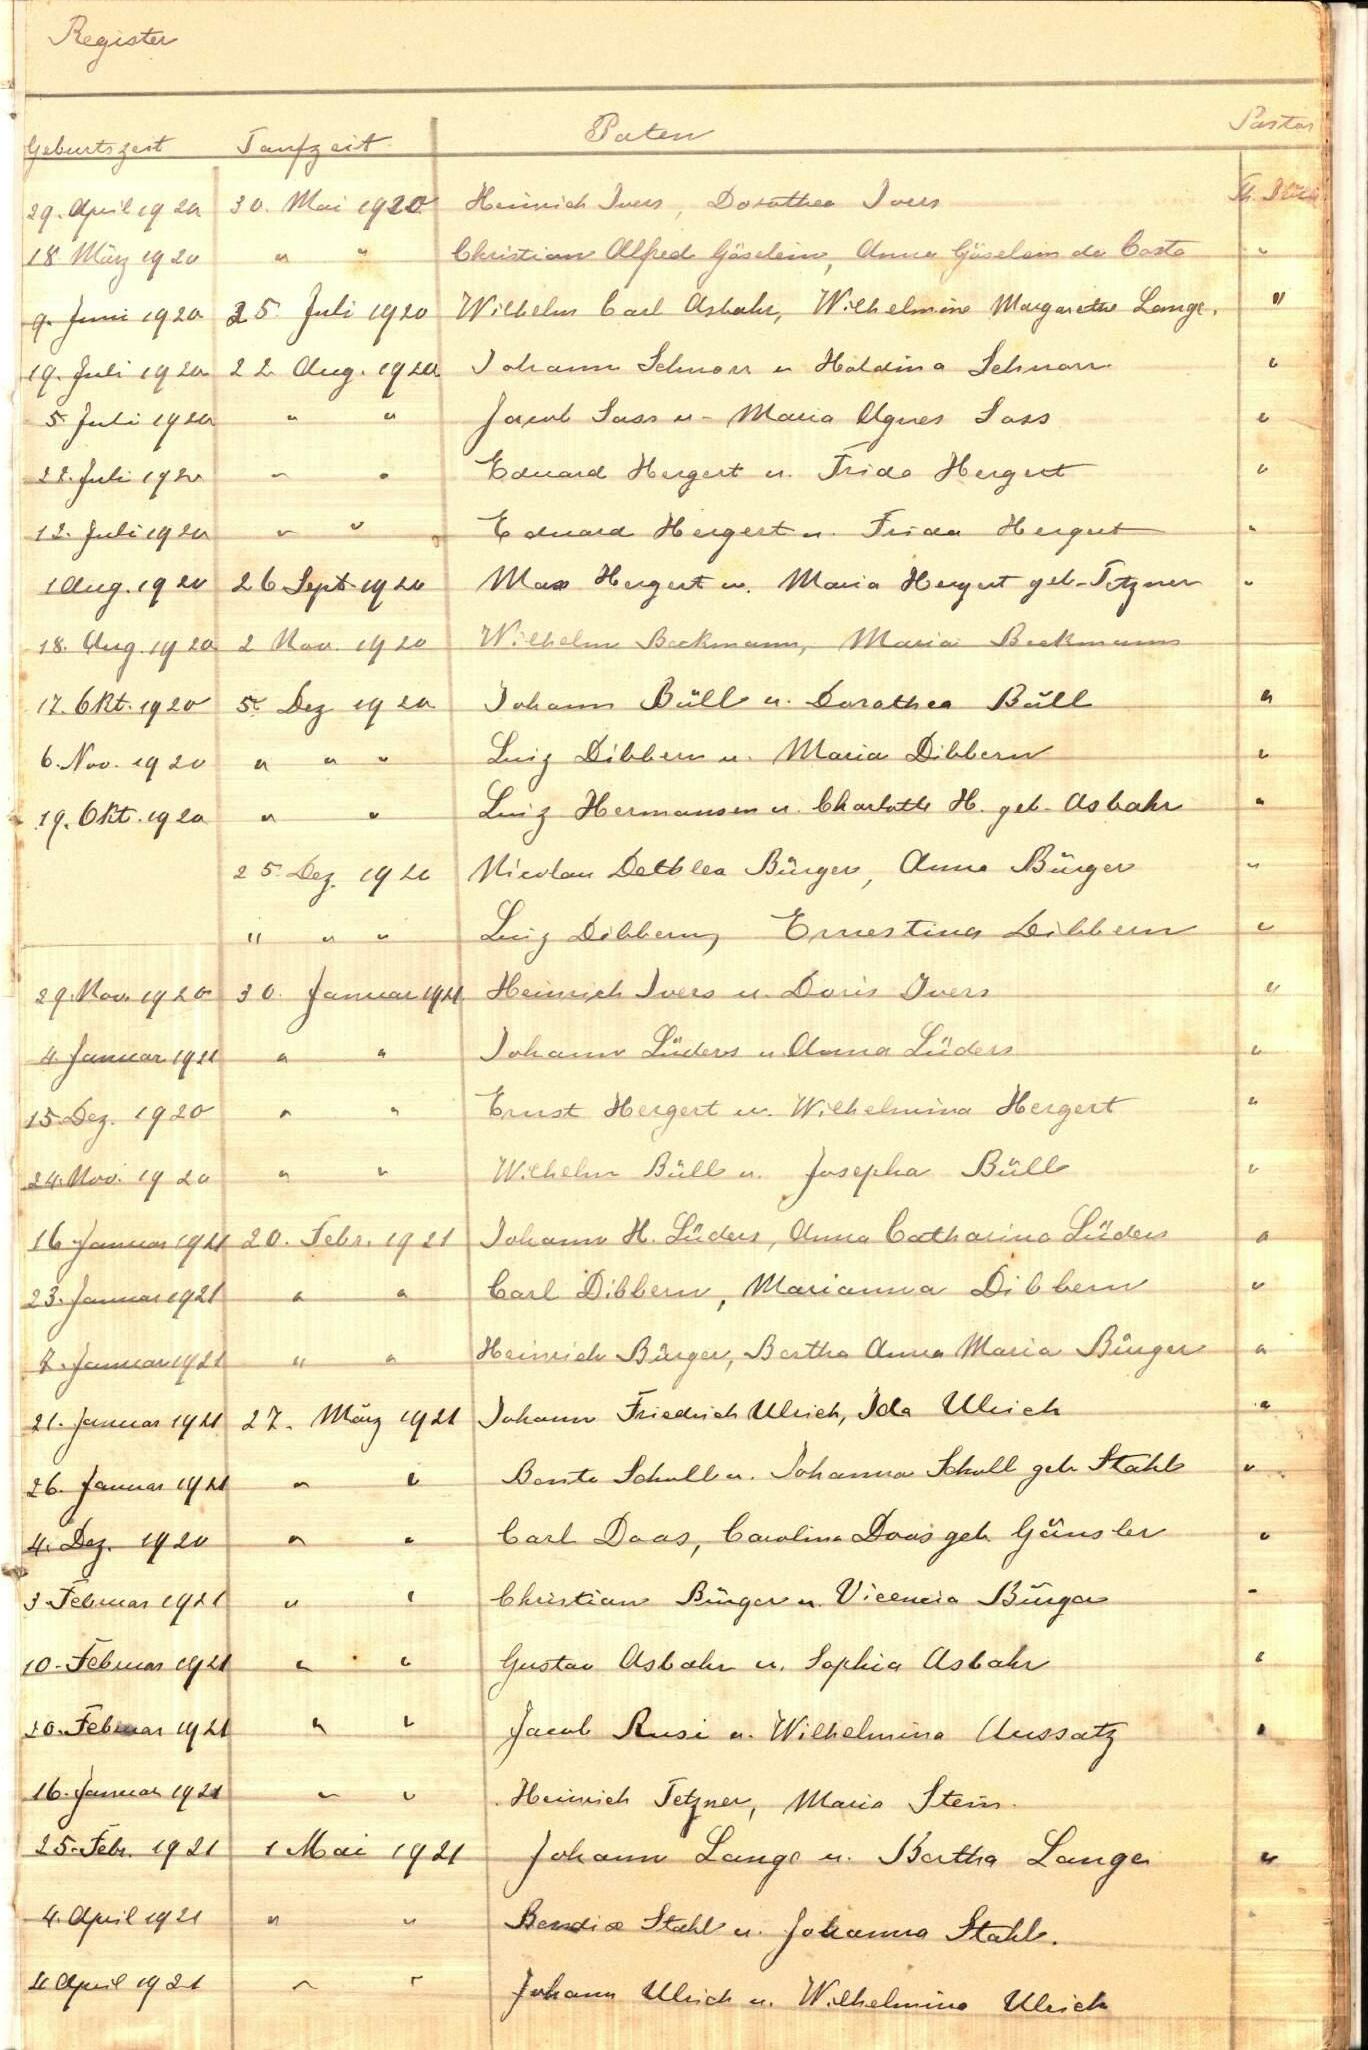 Register
Geburtszeit Taufzeit Paten Pastor
29. April 1920 30. Mai 1920 Heinrich Ivers, Dorothea Ivers Th.
18 März 1920 " " Christian Alfred Göselein, Anna Göselein da Costa "
9. Juni 1920 25 Juli 1920 Wilhelm Carl Asbahr, Wilhelmine Margarethe Lange. "
19. Juli 1920 22 Aug. 1920 Johann Schnorr u Schnorr "
5 Juli 1920 " " Jacob Sass u. Maria Agnes Sass "
22. Juli 1920 " " Eduard Hergert u. Frida Hergert "
12. Juli 1920 " " Eduard Hergert u. Frida Hergert "
1 Aug. 1920 26 Sept 1920 Max Hergert u. Maria Hergert geb. Tetzner "
18. Aug. 1920 2 Nov. 1920 Wilhelm Beckmann, Maria Beckmann
17. Okt. 1920 5. Dez 1920 Johann Büll u. Dorothea Büll "
6. Nov. 1920 " " " Luiz Dibbern u. Maria Dibbern "
19. Okt. 1920 " " Luiz Hermansen u. Charlotte H. geb. Asbahr "
25 Dez. 1920 Nicolau Dethlea Bürger, Anna Bürger "
" " " Luiz Dibbern, Ernestina Dibbern "
29. Nov. 1920 30. Januar 1921 Heinrich Ivers u. Doris Ivers "
4. Januar 1921 " " Johann Lüders u. Anna Lüders "
15 Dez. 1920 " " Ernst Hergert u. Wilhelmina Hergert "
24. Nov. 1920 " " Wilhelm Büll u. Josepha Büll "
16 Januar 1921 20. Febr. 1921 Johann H. Lüders, Anna Catharina Lüders "
23. Januar 1921 " " Carl Dibbern, Marianna Dibbern "
7. Januar 1921 " " Heinrich Bürger, Bertha Anna Maria Bürger "
21. Januar 1921 27. März 1921 Johann Friedrich Ulrich, Ida Ulrich "
26. Januar 1921 " " Bento Schull u. Johanna Schull geb Stahl "
4. Dez. 1920 " " Carl Daas, Carolina Daas geb. Gänsler "
3. Februar 1921 " " Christian Bürger u. Vicencia Bürger "
10. Februar 1921 " " Gustav Asbahr u. Sophia Asbahr "
20. Februar 1921 " " Jacob Rusi u. Wilhelmina Aussatz "
16. Januar 1921 " " Heinrich Tetzner, Maria Stein.
25. Febr. 1921 1 Mai 1921 Johann Lange u. Bertha Lange "
4. April 1921 " " Bendix Stahl u. Johanna Stahl. "
4 April 1921 " " Johann Ulrich u. Wilhelmina Ulrich